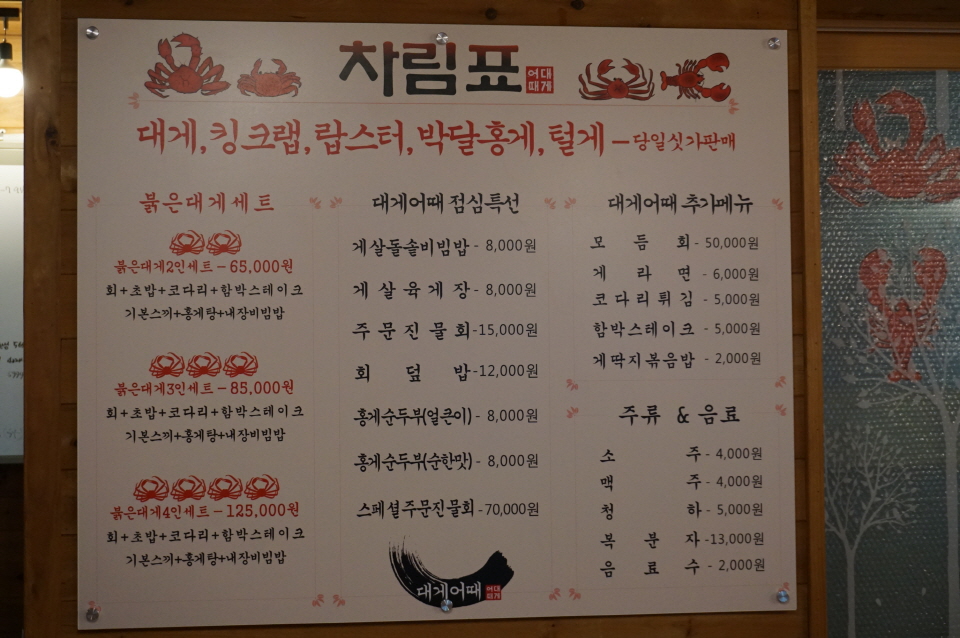 차림표
어대
때게
대게,킹크랩,랍스터,박달홍게,털게-당일싯가판매
붉은대게세트
붉은대게2인세트-65,000원
회+초밥+코다리+함박스테이크
기본스끼+홍게탕+내장비빔밥
붉은대게3인세트-85,000원
회+초밥+코다리+함박스테이크
기본스끼+홍게탕+내장비빔밥
붉은대게4인세트-125,000원
회+초밥+코다리+함박스테이크
기본스끼+홍게탕+내장비빔밥
대게어때 점심특선
게살돌솥비빔밥- 8,000원
게살육게장- 8,000원
주문진물회-15,000원
회덮밥-12,000원
홍게순두부(얼큰이)- 8,000원
홍게순두부(순한맛)- 8,000원
스페셜주문진물회-70,000원
대게어때
어대
때게
대게어때 추가메뉴
모듬회- 50,000원
게라면- 6,000원
코다리튀김- 5,000원
함박스테이크- 5,000원
게딱지볶음밥- 2,000원
주류 & 음료
소주- 4,000원
맥주- 4,000원
청하- 5,000원
복분자-13,000원
음료수- 2,000원